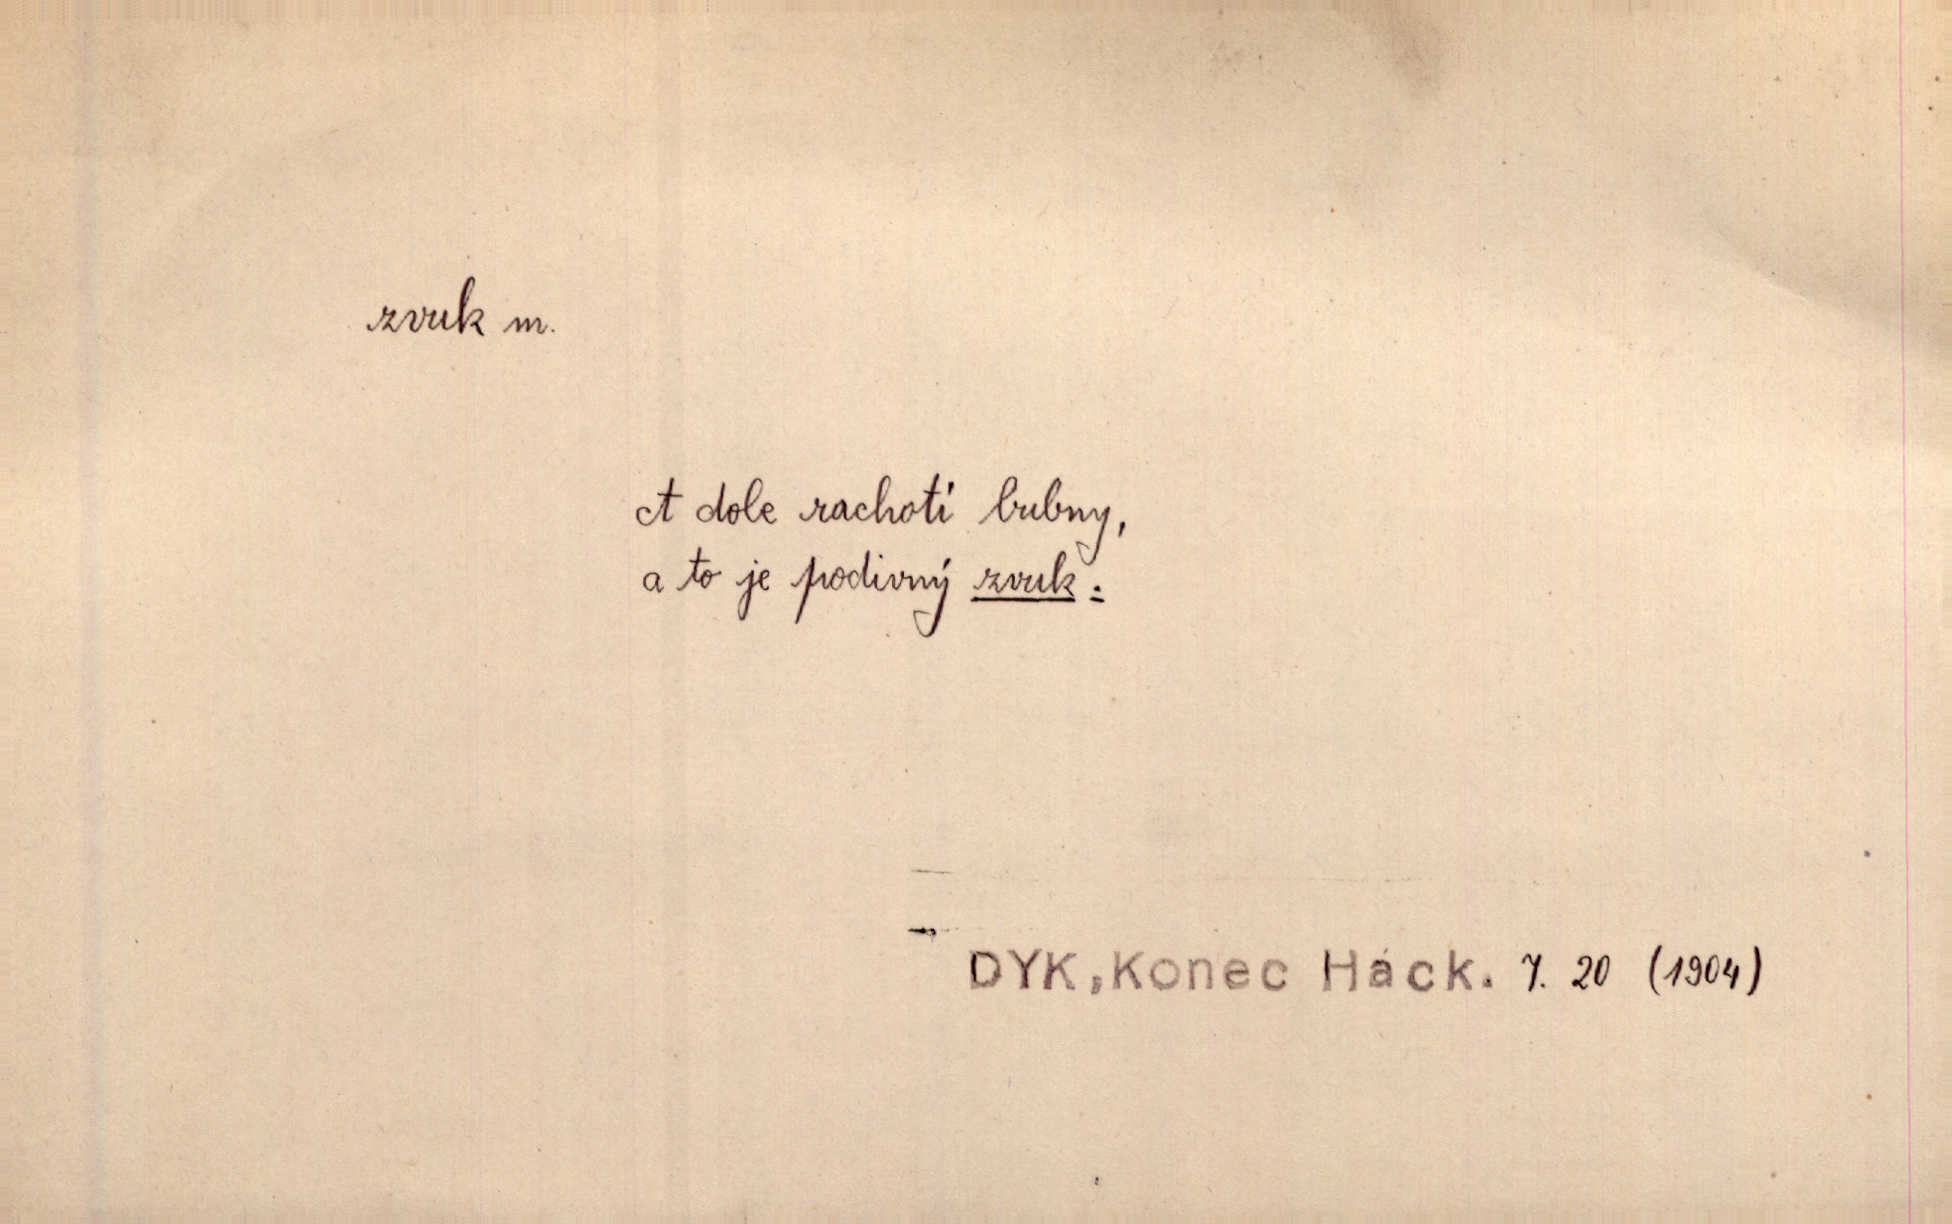 zvuk m.
A dole rachotí bubny,
a to je podivný zvuk.
DYK, Konec Háck. 7. 20 (1904)